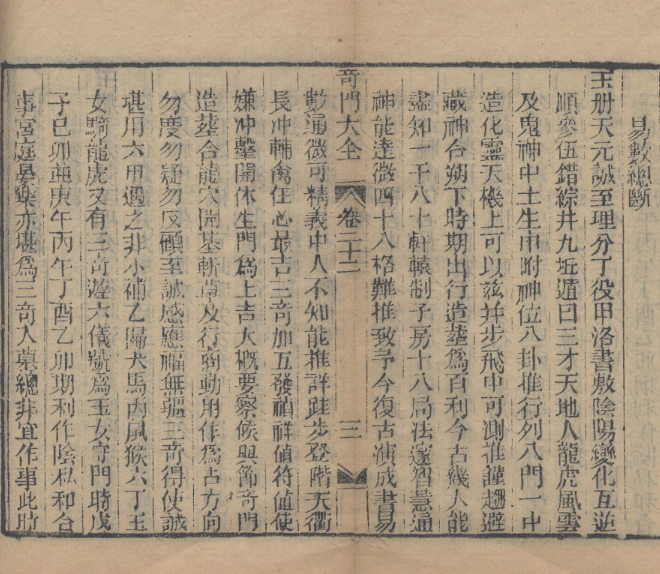 易數總斷
玉册天元誠至理分丁役甲洛書敷陰陽變化互逆
順參伍錯綜井九坵遁曰三才天地人龍虎風雲
及鬼神中土生申附神位八卦推行列八門一中
造化靈天機上可以茲并步飛中可測推謹趨避
藏神台朔下時期出行造葬爲百利今古幾人能
盡知一千八十軒轅制子房十八局法邃智慧通
神能達微四十八格難推致予今復古演成書易
奇門大全 卷二十二 三
數通微可精義中人不知能推詳跬步登階天衢
長冲輔禽任心最吉三奇加五發禎祥值符值使
嫌冲擊開休生門爲上吉大概要察候與節奇門
造葬合龍穴開基斬草及行商動用作爲占方向
勿度勿疑勿反顧至誠感應福無疆三奇得使誠
堪用六甲遇之非小補乙陽犬馬丙鼠猴六丁玉
女騎龍虎又有三奇遊六儀號爲玉女守門時戊
子巳卯酉庚午丙午丁酉乙卯期利作陰私和合
事宮庭宴樂亦堪爲三奇入墓總非宜作事此時